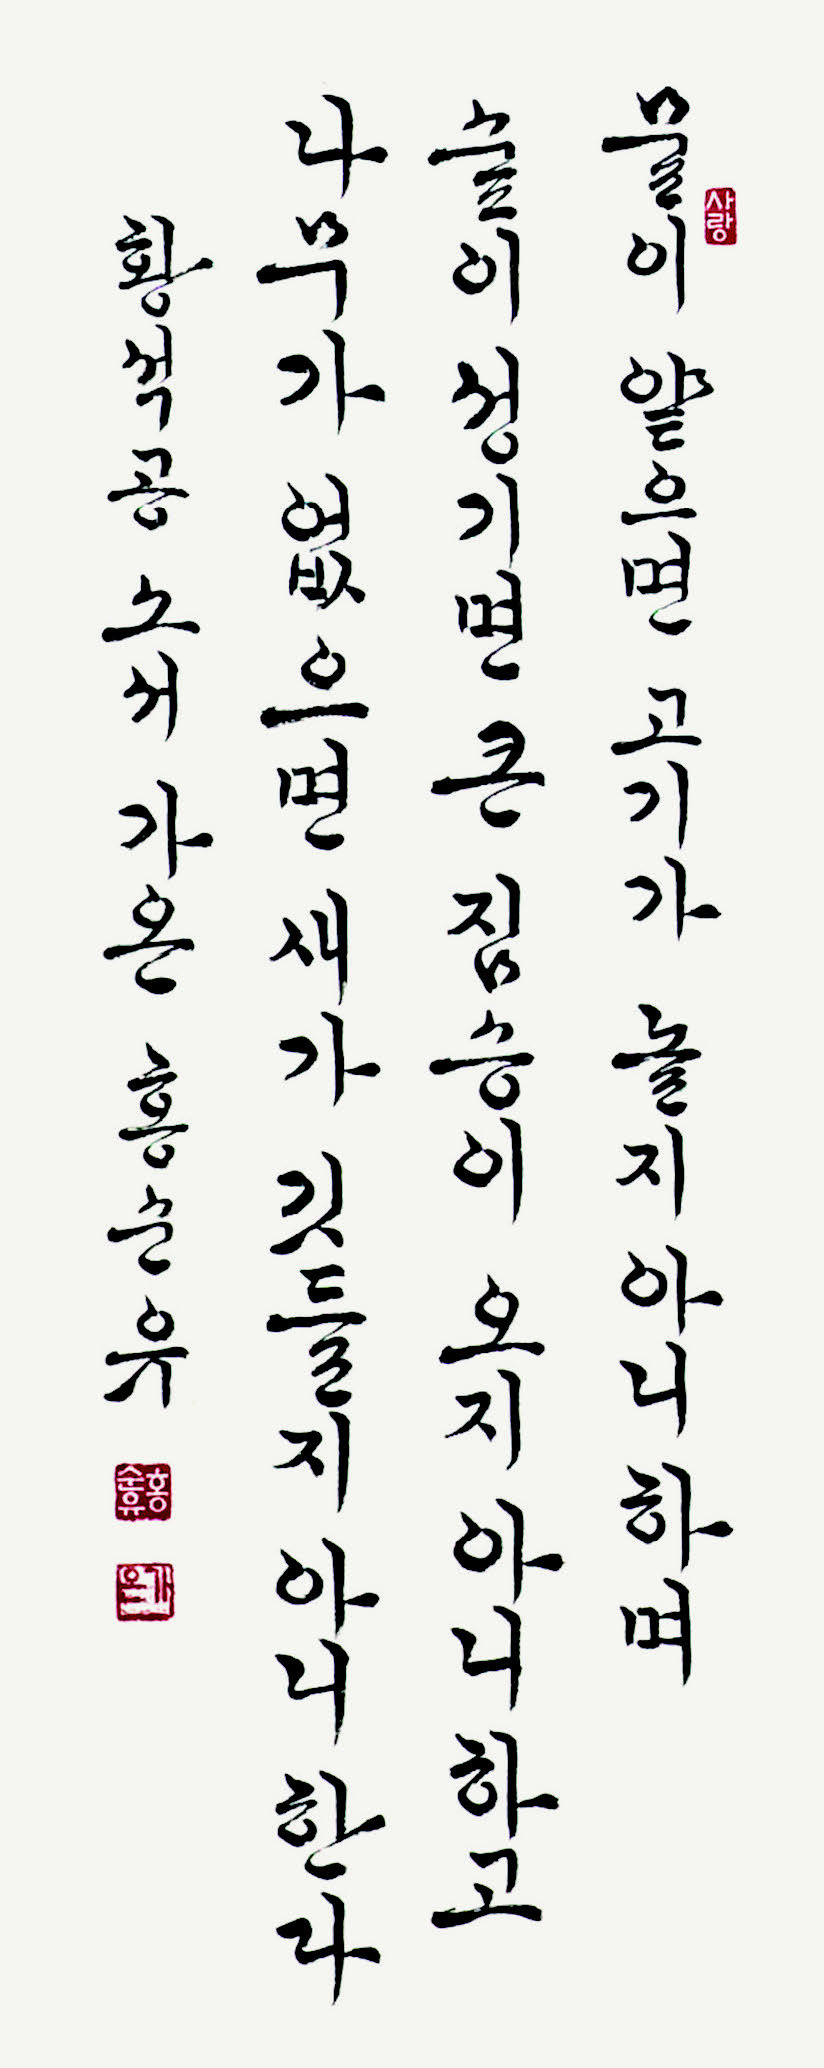 물이 얕으면 고기가 놀지 아니 하며
사랑
숲이 성기면 큰 짐승이 오지 아니 하고
나무가 없으면 새가 깃들지 아니 한다
황석공 소서 가온 홍순유
홍순유
가온